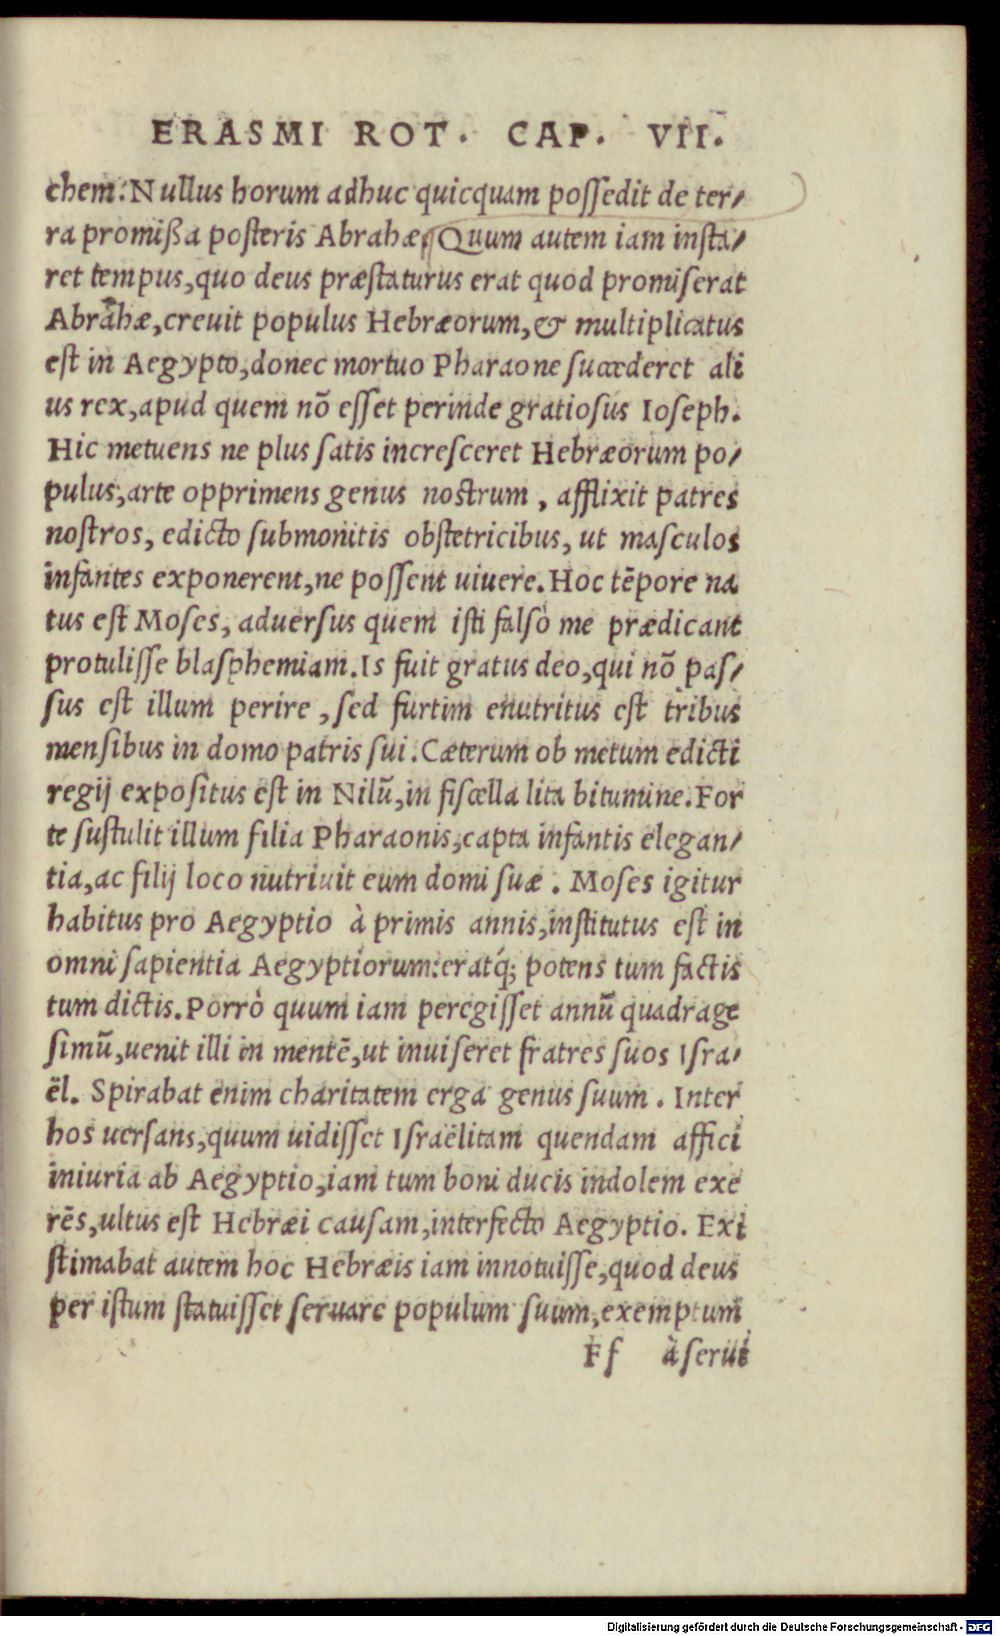 ERASMI ROT. CAP. VII.
chem: Nullus horum adhuc quicquam possedit de ter/
ra promißa posteris Abrahæ. Quum autem iam insta/
ret tempus, quo deus præstaturus erat quod promiserat
Abrahæ, creuit populus Hebræorum, & multiplicatus
est in Aegypto, donec mortuo Pharaone succederet ali
us rex, apud quem nō esset perinde gratiosus Ioseph.
Hic metuens ne plus satis incresceret Hebræorum po/
pulus, arte opprimens genus nostrum, afflixit patres
nostros, edicto submonitis obstetricibus, ut masculos
infantes exponerent, ne possent uiuere. Hoc tēpore na
tus est Moses, aduersus quem isti falsò me prædicant
protulisse blasphemiam. Is fuit gratus deo, qui nō pas/
sus est illum perire, sed furtim enutritus est tribus
mensibus in domo patris sui. Cæterum ob metum edicti
regij expositus est in Nilū, in fiscella lita bitumine. For
te sustulit illum filia Pharaonis, capta infantis elegan/
tia, ac filij loco nutriuit eum domi suæ. Moses igitur
habitus pro Aegyptio à primis annis, institutus est in
omni sapientia Aegyptiorum: eratq́; potens tum factis
tum dictis. Porrò quum iam peregisset annū quadrage
simū, uenit illi in mentē, ut inuiseret fratres suos Isra/
ël. Spirabat enim charitatem erga genus suum. Inter
hos uersans, quum uidisset Israëlitam quendam affici
iniuria ab Aegyptio, iam tum boni ducis indolem exe
rēs, ultus est Hebræi causam, interfecto Aegyptio. Exi
stimabat autem hoc Hebræis iam innotuisse, quod deus
per istum statuisset seruare populum suum, exemptum
Ff à serui
Digitalisierung gefördert durch die Deutsche Forschungsgemeinschaft - DFG